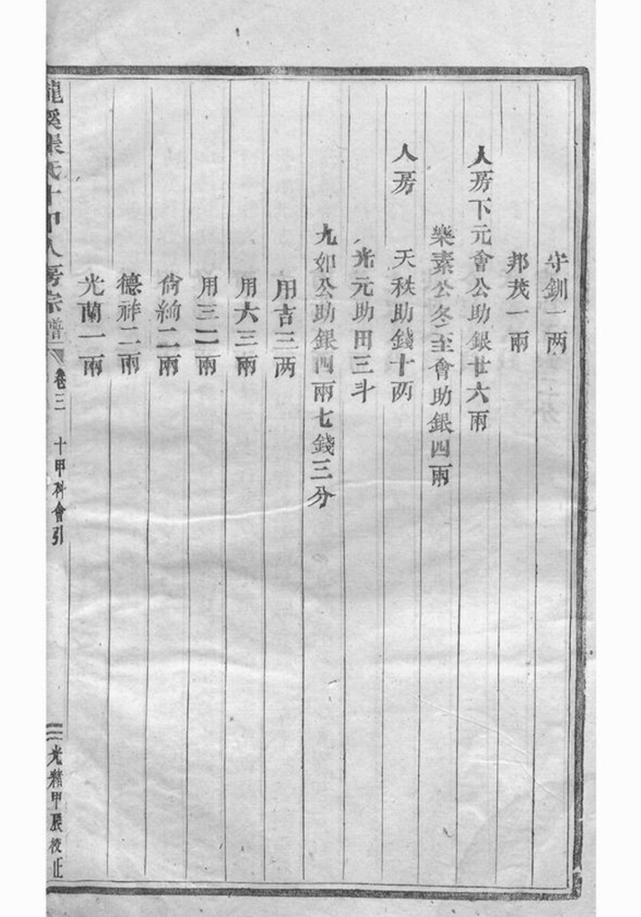 守釧一两
邦茂一兩
人房下元會公助銀廿六兩
樂素公冬至會助銀四兩
人房　天秩助錢十两
光元助田三斗
九如公助銀四兩七錢三分
用吉三两
用六三兩
用三二兩
尚絢二兩
德祥二兩
光蘭一兩
龍溪張氏十甲人房宗譜　卷三　十甲科會引　光緒甲辰校正